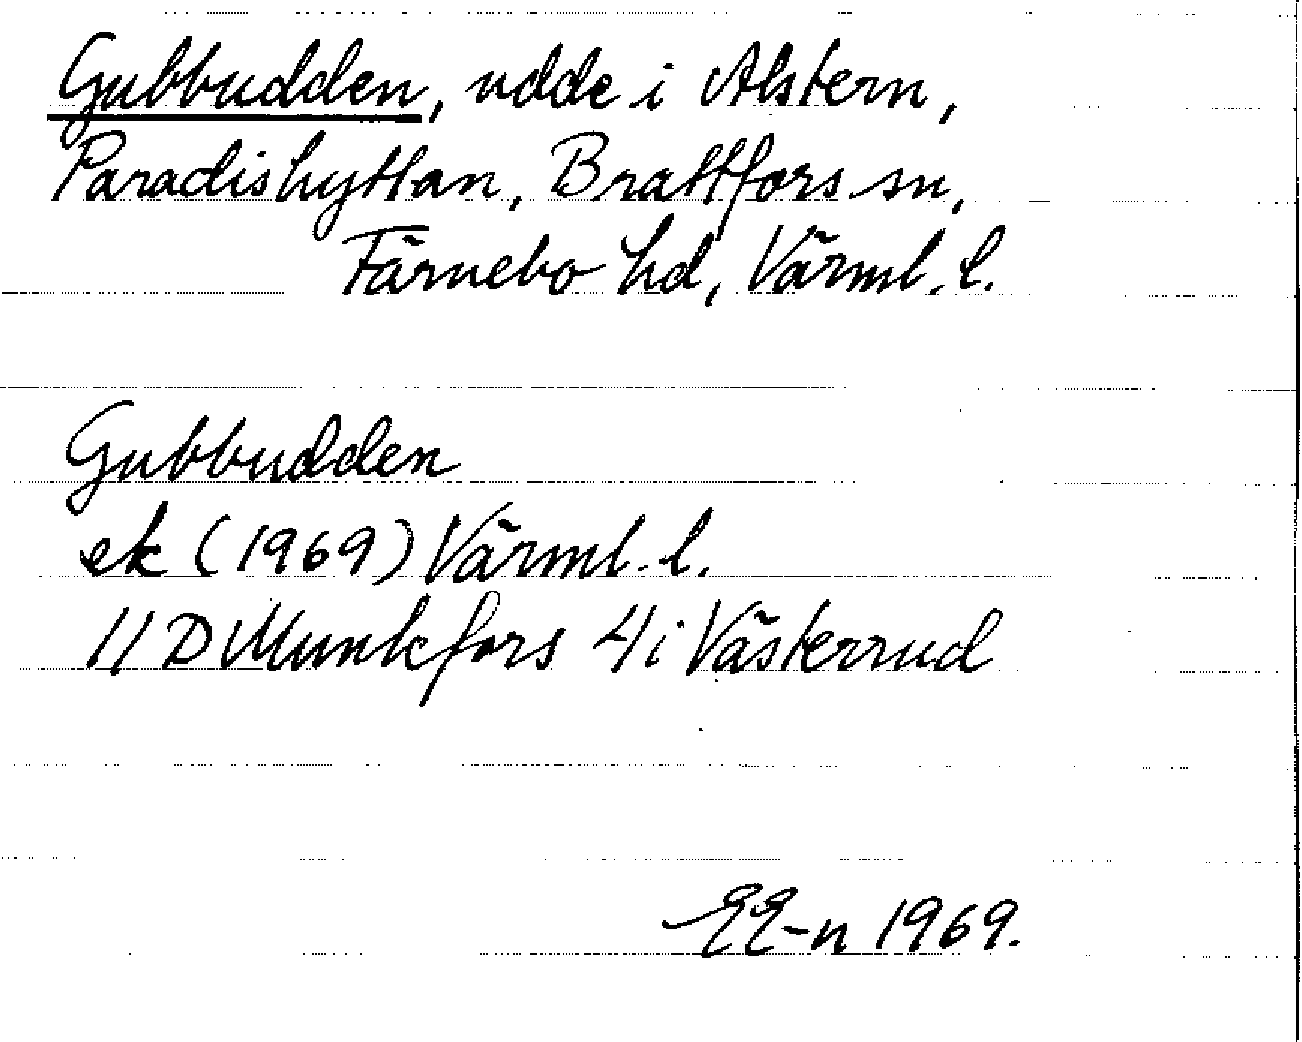 Gubbudden, udde i Alstern,
Paradishyttan, Brattfors sn,
Färnebo hd, Värml. l.
Gubbudden
ek (1969) Värml. l.
11 D Munkfors 4i Västerrud
EE-n 1969.